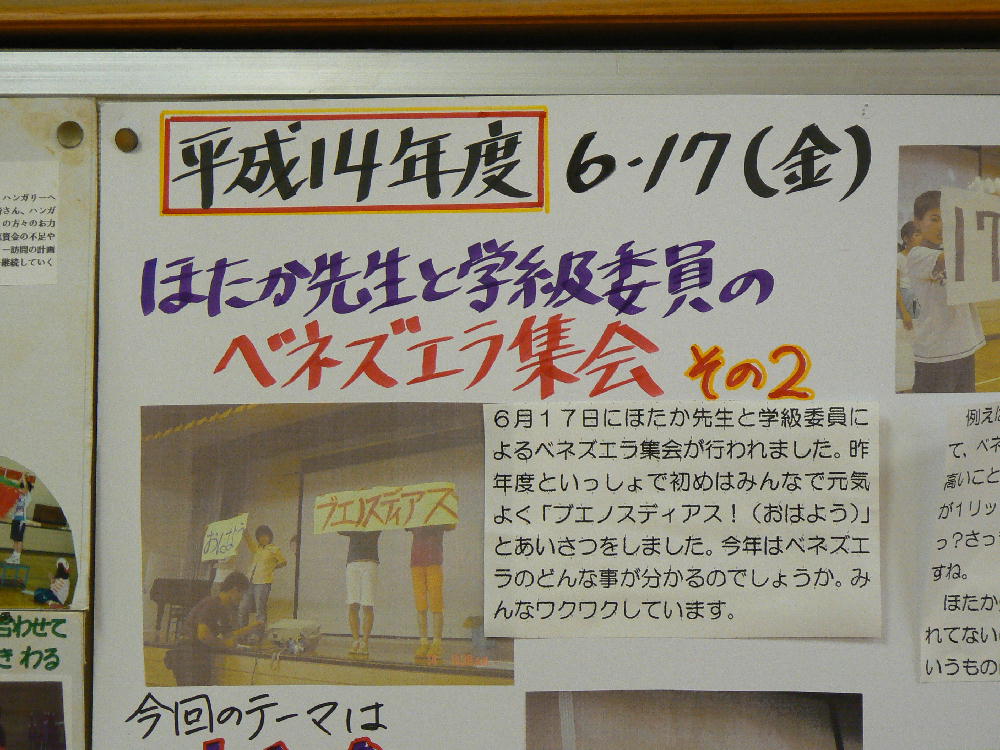 平成14年度 6・17(金)
ほたか先生と学級委員の
ベネズエラ集会 その2
6月17日にほたか先生と学級委員に
よるベネズエラ集会が行われました。昨
年度といっしょで初めはみんなで元気
よく「ブエノスディアス!(おはよう)」
とあいさつをしました。今年はベネズエ
ラのどんな事が分かるのでしょうか。み
んなワクワクしています。
おはよう
ブエノスディアス
今回のテーマは
ハンガリーへ
さん、ハンガ
の方々のお力
資金の不足や
訪問の計画
継続していく
合わせて
きわる
17
例えば
て、ベネ
高いこと
が1リッ
っ?さっ
すね。
ほたか
れてない
いうもの